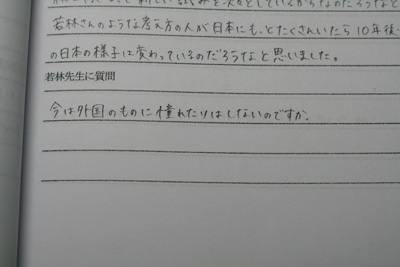 新しい試みを次々としているからなのだろうなと
若林さんのような考え方の人が日本にもっとたくさんいたら10年後
の日本の様子は変わっているのだろうなと思いました。
若林先生に質問
今は外国のものに憧れたりはしないのですか.